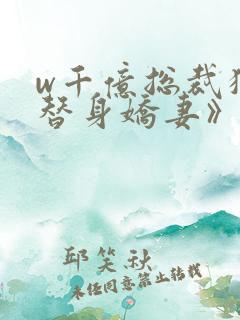 w千亿总裁独
替身娇妻》
邱笑秋
未经同意禁止转载